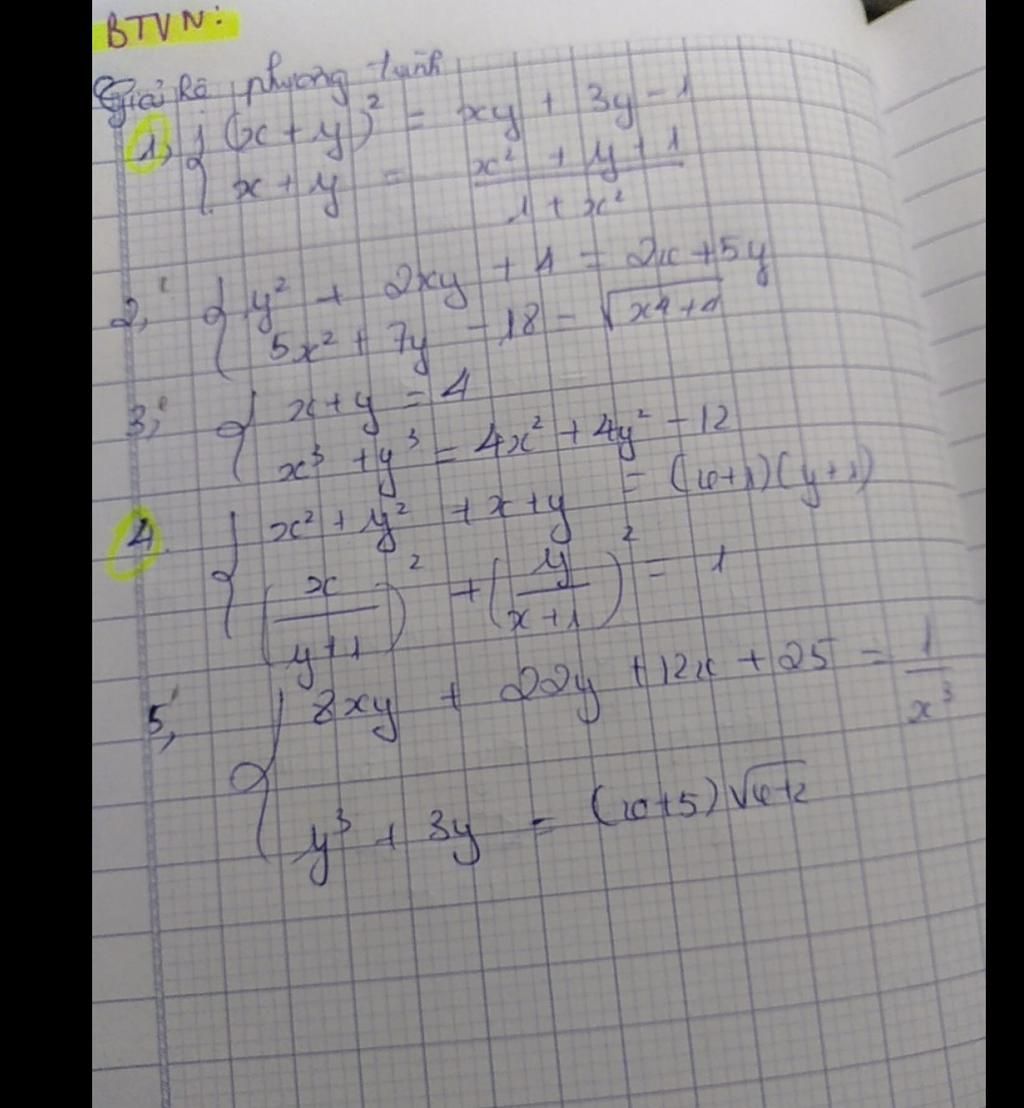 BTVN:
Giải hệ phương trình
1, { (x + y)² = xy + 3y - 1
x + y = (x² + y + 1)/(1 + x²)
2, { y² + 2xy + 4 = 2x + 5y
5x² + 7y - 18 = √(x⁴ + 4)
3, { x + y = 4
x³ + y³ = 4x² + 4y² - 12
4. { x² + y² + x + y = (x+1)(y+1)
(x/(y+1))² + (y/(x+1))² = 1
5, { 8xy + 22y + 12x + 25 = 1/x³
y³ + 3y = (x+5)√(x+2)